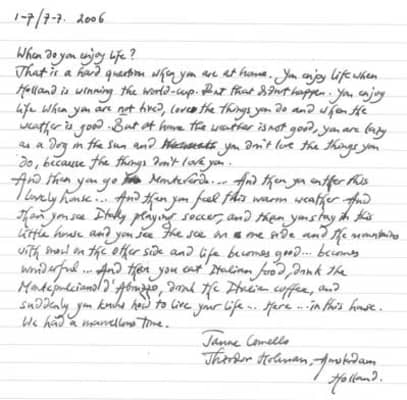 1-7/7-7. 2006
When do you enjoy life?
That is a hard question when you are at home. You enjoy life when
Holland is winning the world-cup. But that didn't happen. You enjoy
life when you are not tired, love the things you do and when the
weather is good. But at home the weather is not good, you are lazy
as a dog in the sun and you don't love the things you
do, because the things don't love you.
And then you go Monteverde... And then you entfer this
lovely house... And then you feel this warm weather And
than you see Italy playing soccer, and then you stay in this
little house and you see the see on one side and the mountains
with snow on the other side and life becomes good... becomes
wonderful... And then you eat Italian food, drink the
Montepulciano d'Abruzzo, drink the Italian coffee, and
suddenly you know how to live your life... Here... in this house.
We had a marvellous time.
Theodor Holman, Amsterdam
Holland.